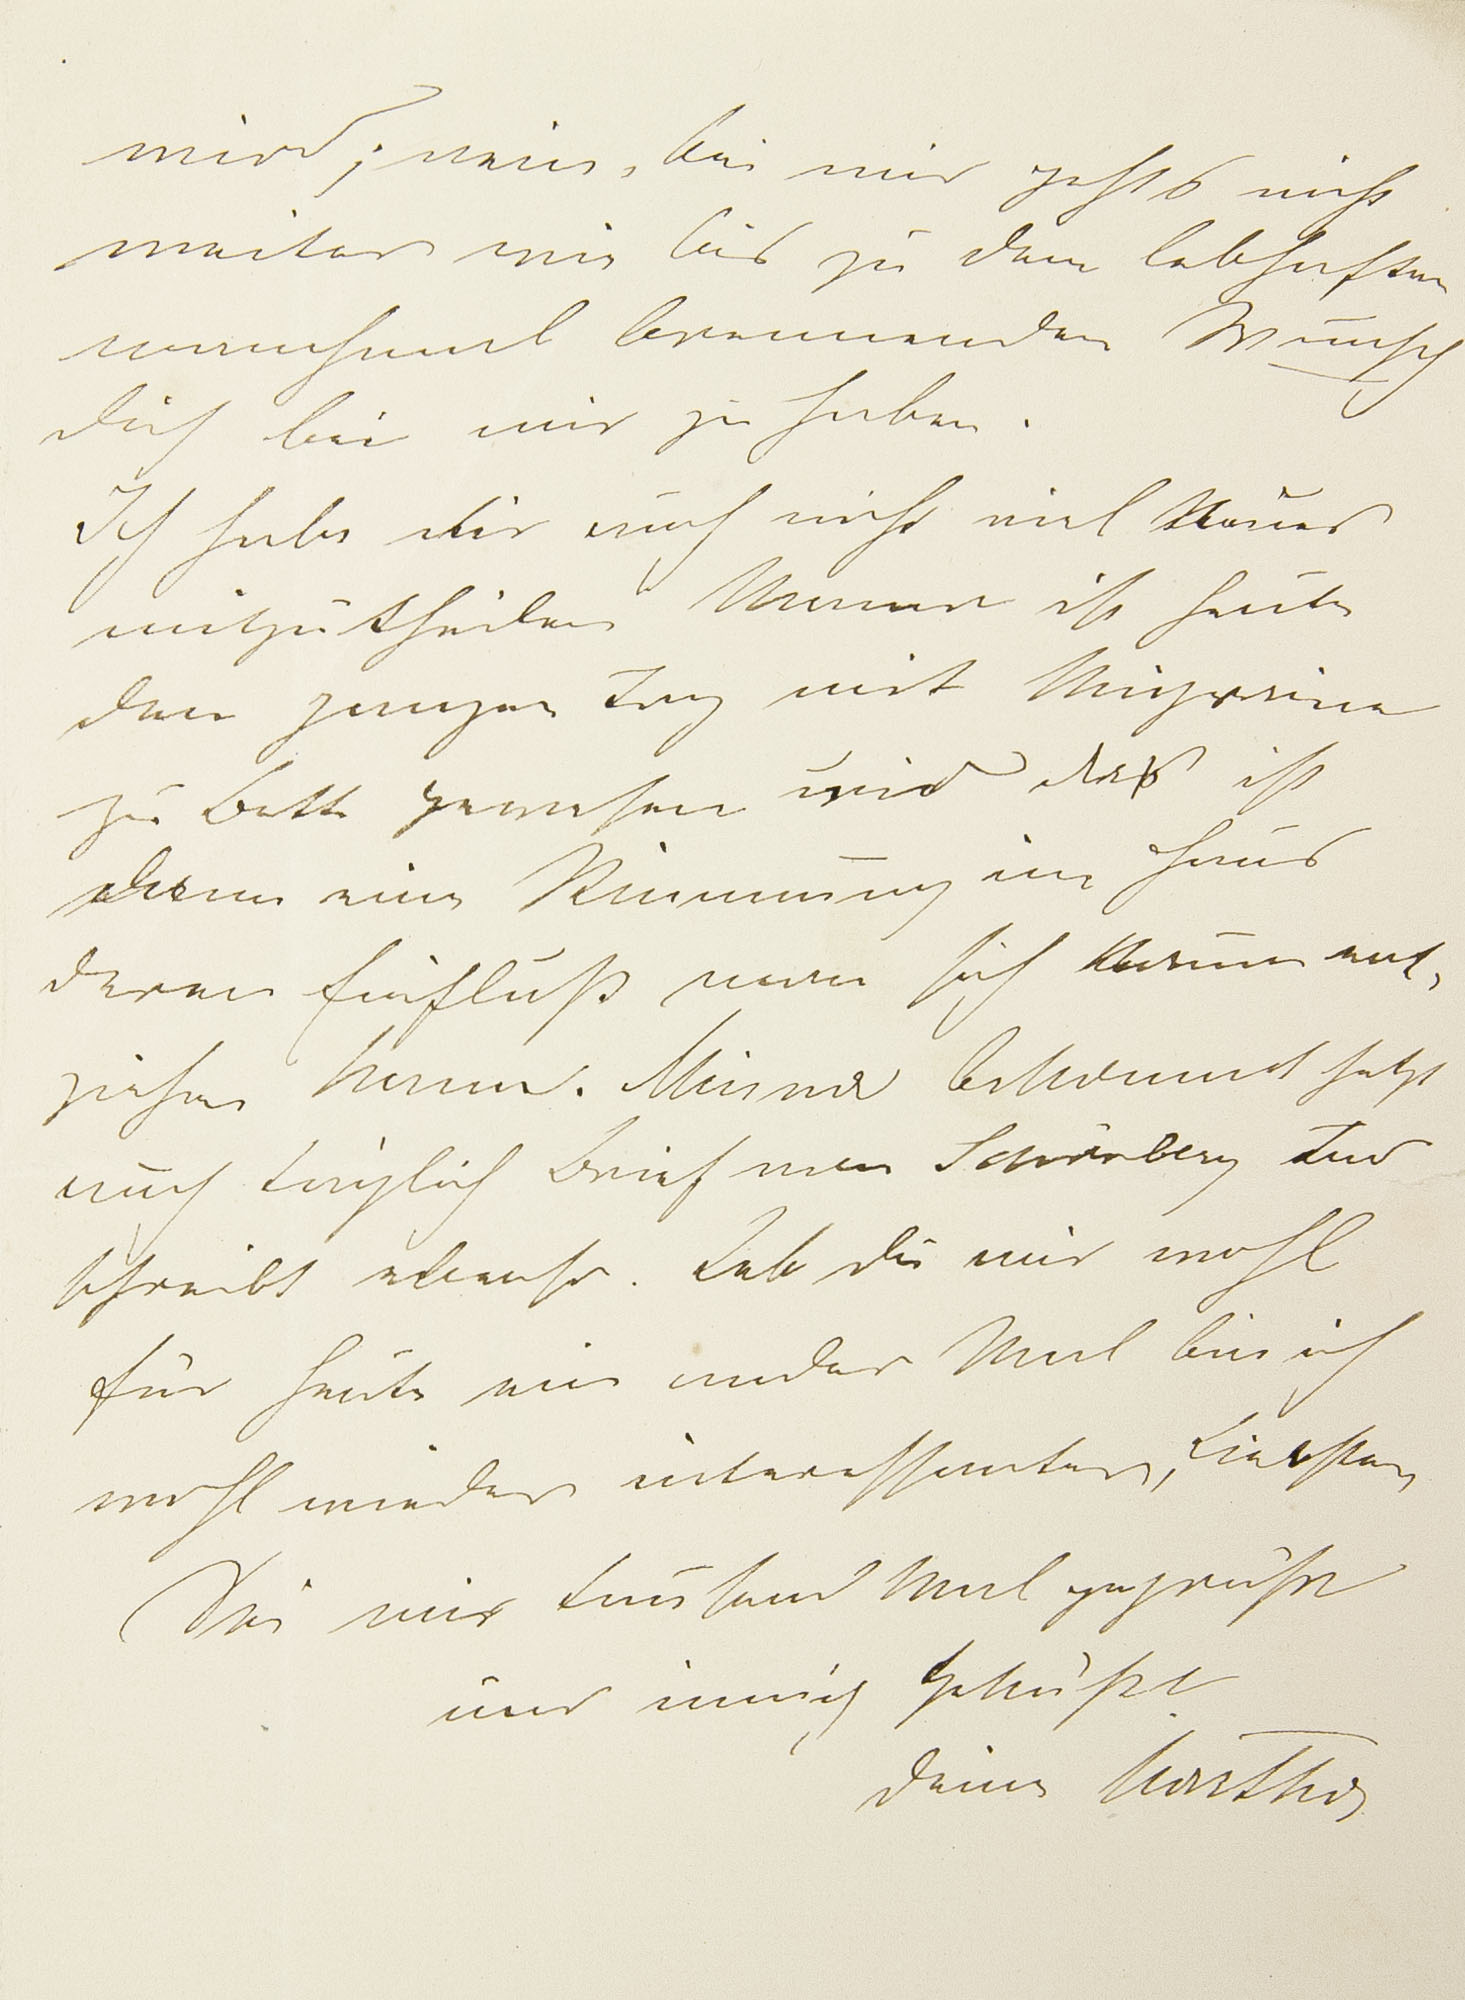 wird; nein, bei mir gehts nicht
weiter wie bis zu dem lebhaften
manchmal brennenden Wunsch
dich bei mir zu haben.
Ich habe dir auch nicht viel Neues
mitzutheilen Mama ist heute
den ganzen Tag mit Migraine
zu Bett gewesen und das ist
dann eine Stimmung im Haus
deren Einfluß man sich kaum ent-
ziehen kann. Minna bekommt jetzt
auch täglich Brief von Schönberg und
schreibt ebenso. Leb du mir wohl
für heute ein ander Mal bin ich
wohl wieder interessanter, Liebster
Sei mir tausend Mal gegrüßt
und innig geküßt
deine Martha